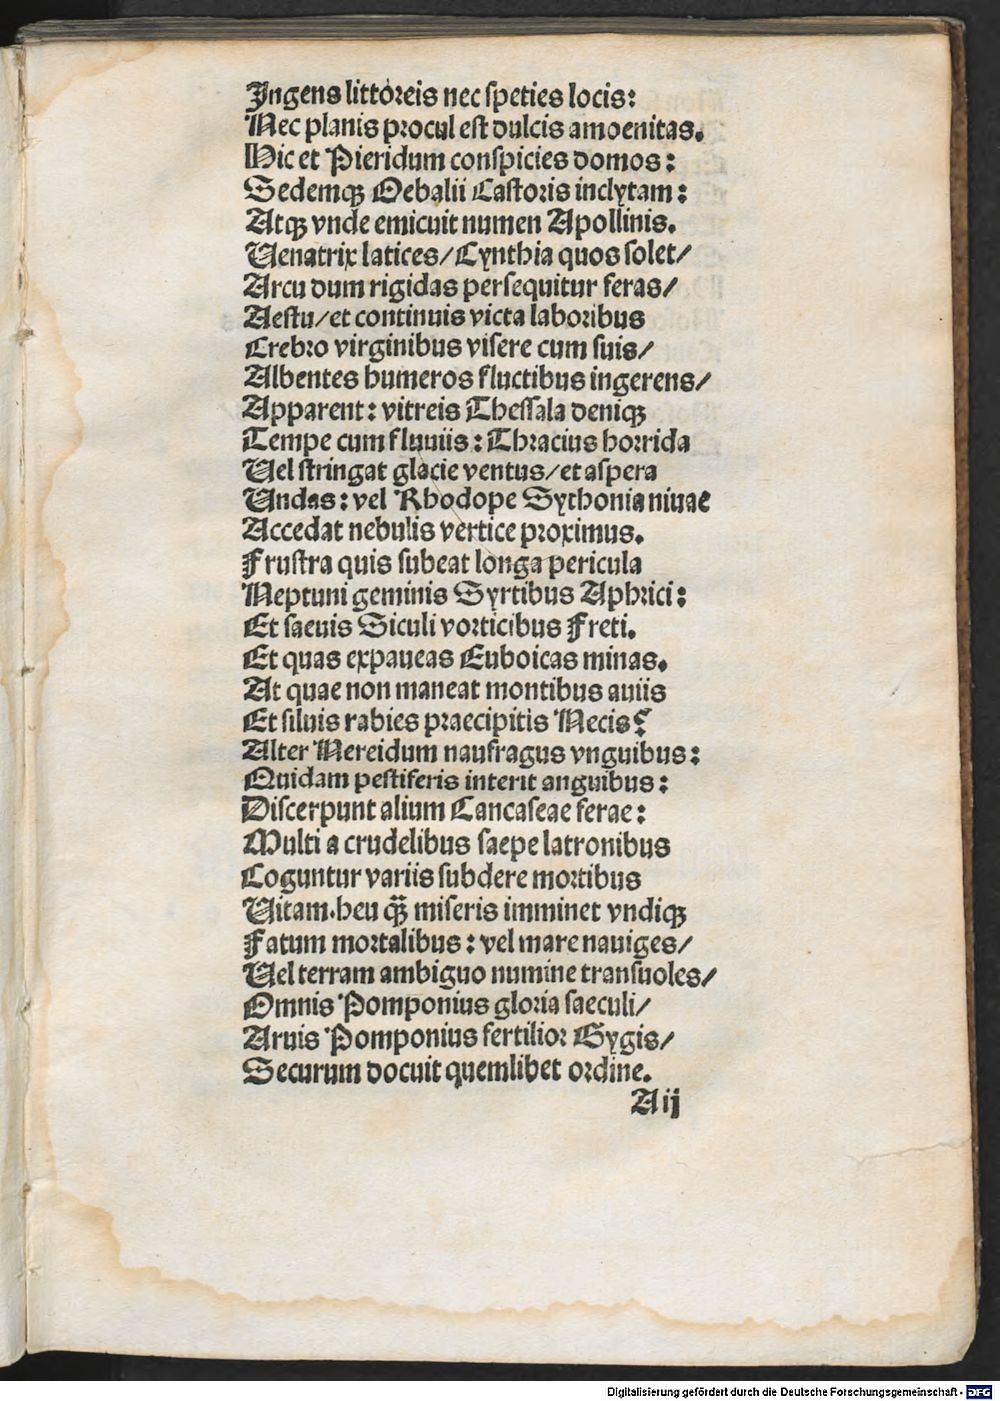 Ingens littoreis nec speties locis:
Nec planis procul est dulcis amoenitas.
Hic et Pieridum conspicies domos:
Sedemqȝ Oebalii Castoris inclytam:
Atqȝ vnde emicuit numen Apollinis.
Uenatrix latices/Cynthia quos solet/
Arcu dum rigidas persequitur feras/
Aestu/et continuis victa laboribus
Crebro virginibus visere cum suis/
Albentes humeros fluctibus ingerens/
Apparent: vitreis Thessala deniqȝ
Tempe cum fluuiis: Thracius horrida
Uel stringat glacie ventus/et aspera
Undas: vel Rhodope Sythonia niuae
Accedat nebulis vertice proximus.
Frustra quis subeat longa pericula
Neptuni geminis Syrtibus Aphrici:
Et saeuis Siculi vorticibus Freti.
Et quas expaueas Euboicas minas.
At quae non maneat montibus auiis
Et siluis rabies praecipitis Necis?
Alter Nereidum naufragus vnguibus:
Quidam pestiferis interit anguibus:
Discerpunt alium Cancaseae ferae:
Multi a crudelibus saepe latronibus
Coguntur variis subdere mortibus
Uitam.heu qȝ̈ miseris imminet vndiqȝ
Fatum mortalibus: vel mare nauiges/
Uel terram ambiguo numine transuoles/
Omnis Pomponius gloria saeculi/
Aruis Pomponius fertilior Gygis/
Securum docuit quemlibet ordine.
Aij
Digitalisierung gefördert durch die Deutsche Forschungsgemeinschaft - DFG